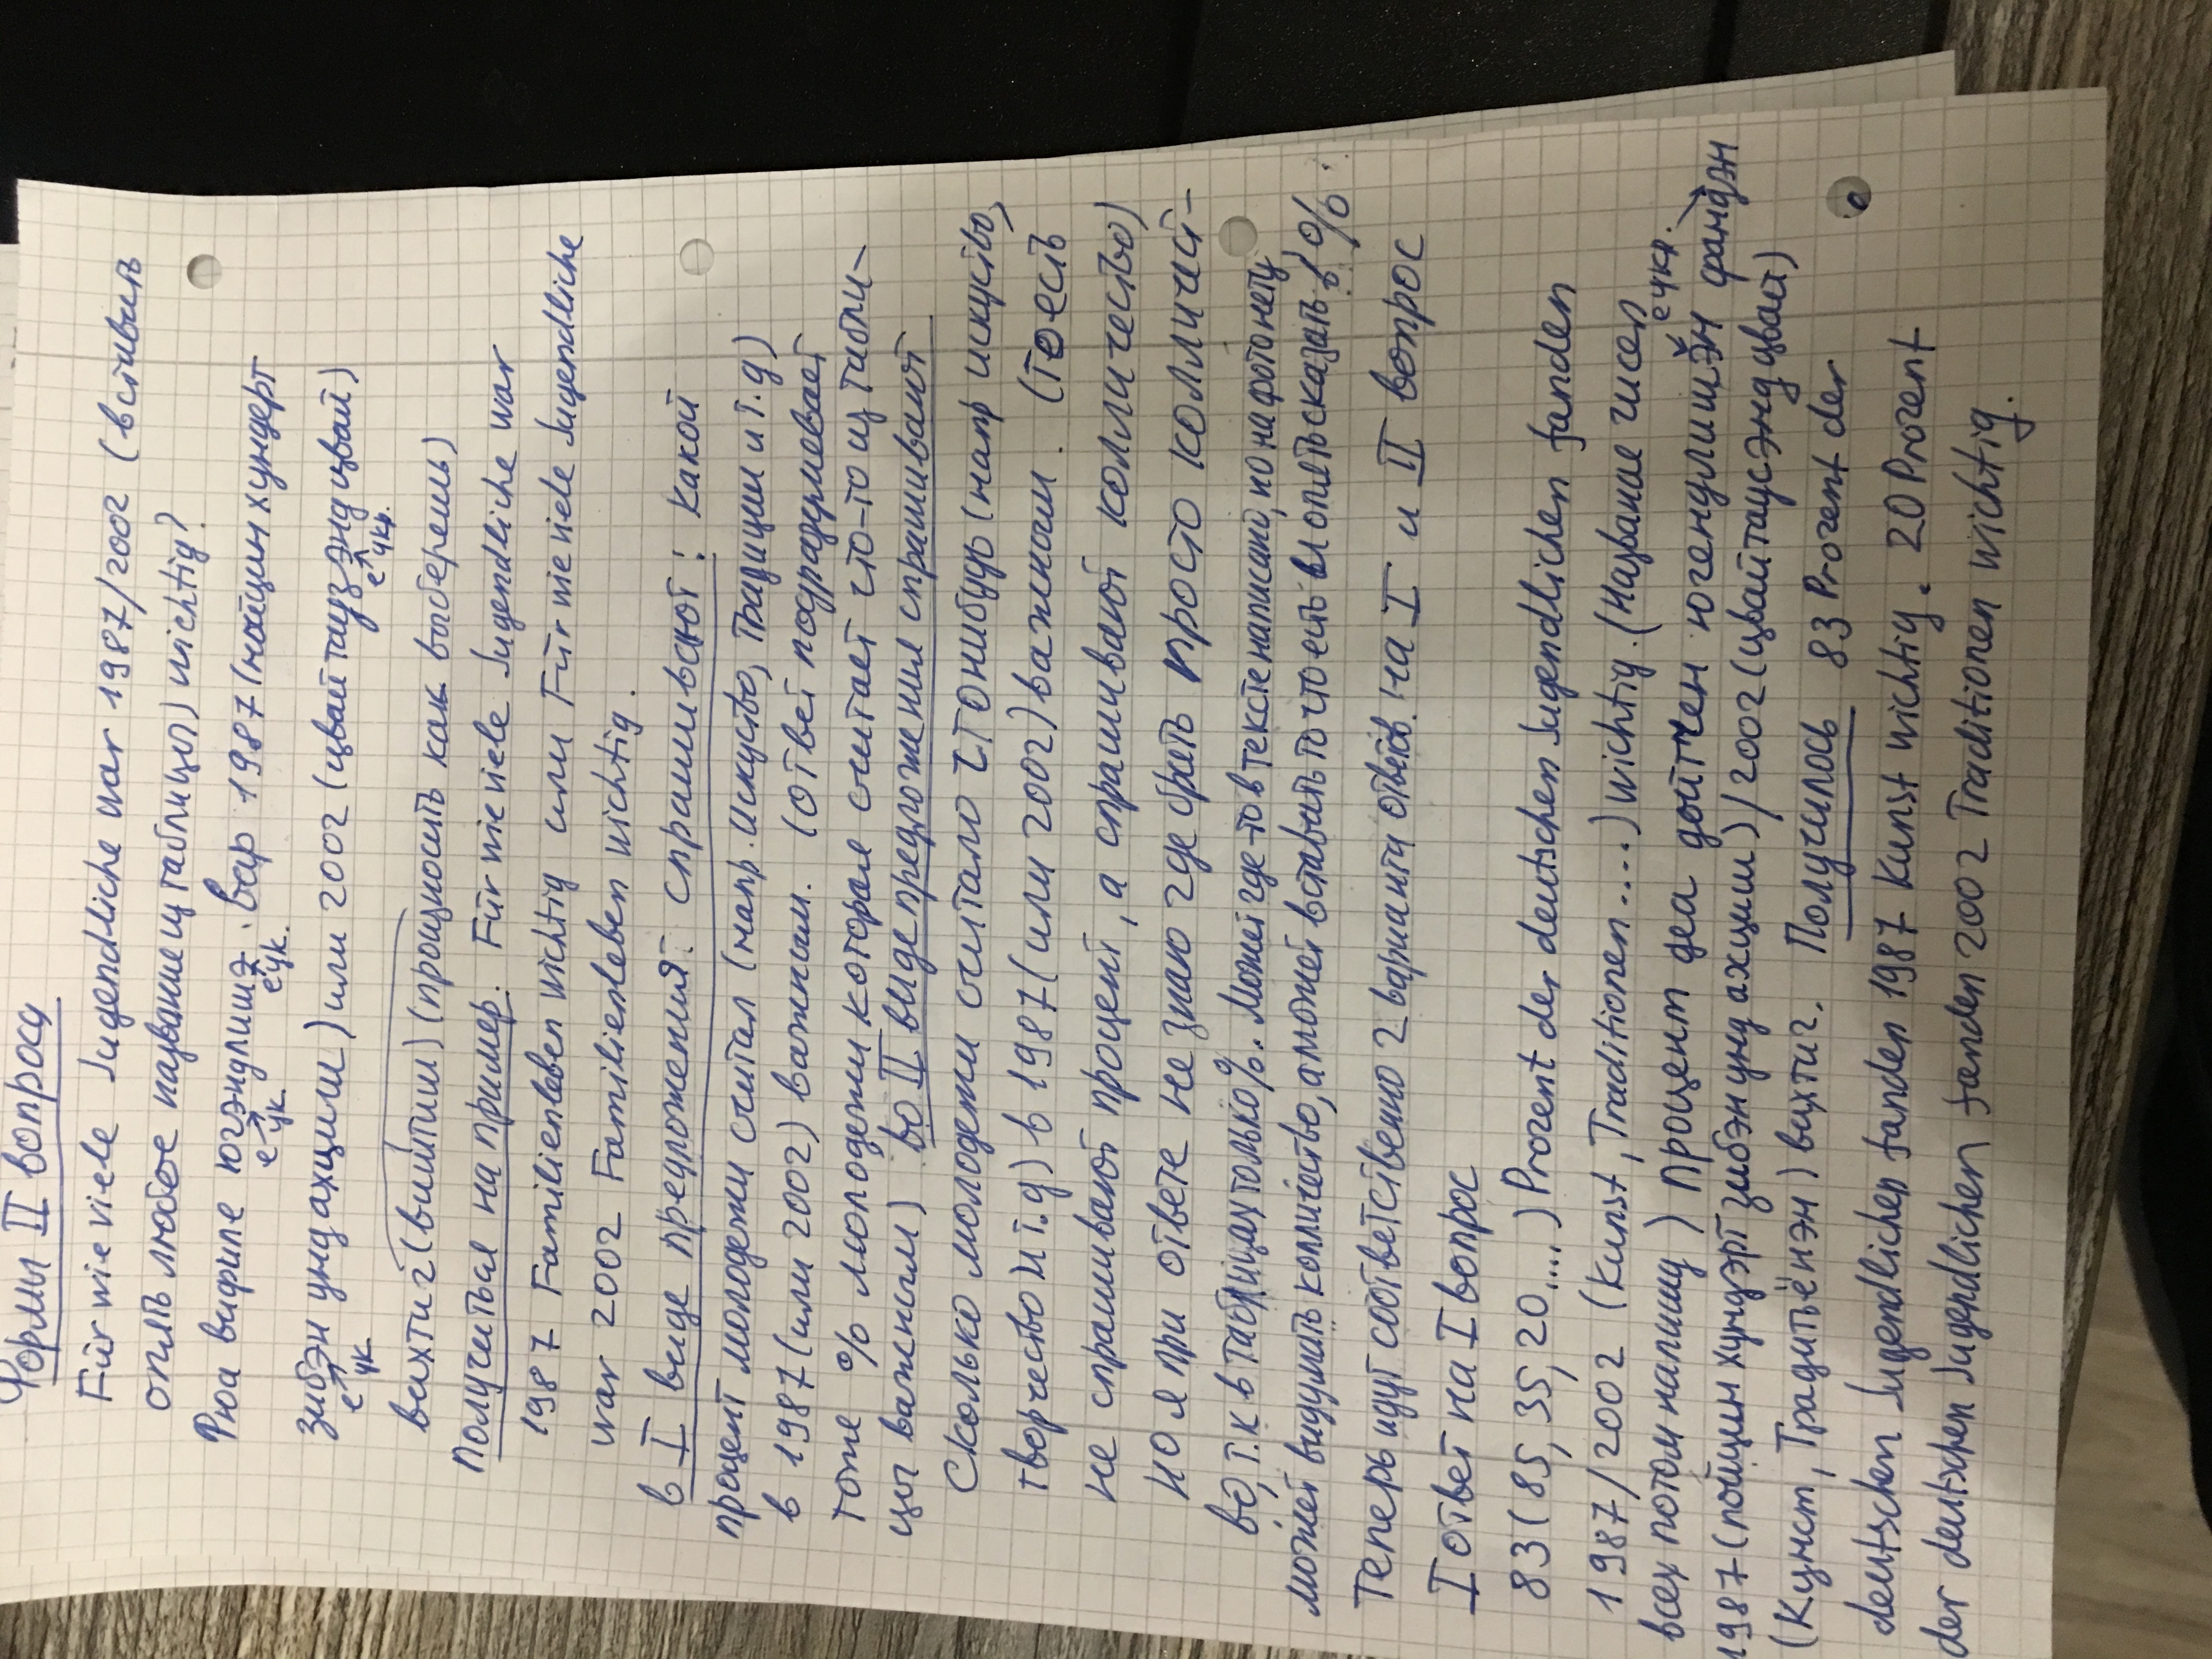 Формы II вопроса
Für wie viele Jugendliche war 1987/2002 (вставить
опять любое название из таблицы) wichtig?
Фюа вифиле югэндлишэ вар 1987 (найцин хундерт
е укр.
е ук.
зибэн унд ахциш) или 2002 (цвай таузэнд цвай)
е ук
е укр.
вахтиг (вишти) (произносить как выберешь)
Получиться на пример. Für wie viele Jugendliche war
1987 Familienleben wichtig или Für wie viele Jugendliche
war 2002 Familienleben wichtig.
в I виде предложения спрашивают: Какой
процент молодежи считал (напр. искуство, традиции и т.д)
в 1987 (или 2002) важным. (Ответ подразумевает
тоже % молодежи которая считает что-то из табли-
цы важным) во II виде предложения спрашивают
Сколько молодежи считало чтонибудь (напр искуство,
творчество и т.д) в 1987 (или 2002) важным. (тоесть
не спрашивают процент, а спрашивают колличество)
но я при ответе не знаю где брать просто колличест-
во, т.к в таблицах только %. Может где-то в тексте написано, но на фото нету
может видумать колличество, а может вставить то что есть и опять сказать в %.
Теперь идут соответственно 2 варианта ответов на I и II вопрос
I ответ на I вопрос
83 (85, 35, 20....) Prozent der deutschen Jugendlichen fanden
1987/2002 (Kunst, Traditionen....) wichtig. (Название чисел
всех потом напишу) Процент деа дойтчен югендлишэн фандэн
е укр.
1987 (нойцин хундэрт зибэн унд ахциш) / 2002 (цвайтаусэнд цвай)
(Кунст, Традитьёнэн) вихтиг. Получилось 83 Prozent der
deutschen Jugendlichen fanden 1987 Kunst wichtig. 20 Prozent
der deutschen Jugendlichen fanden 2002 Traditionen wichtig.